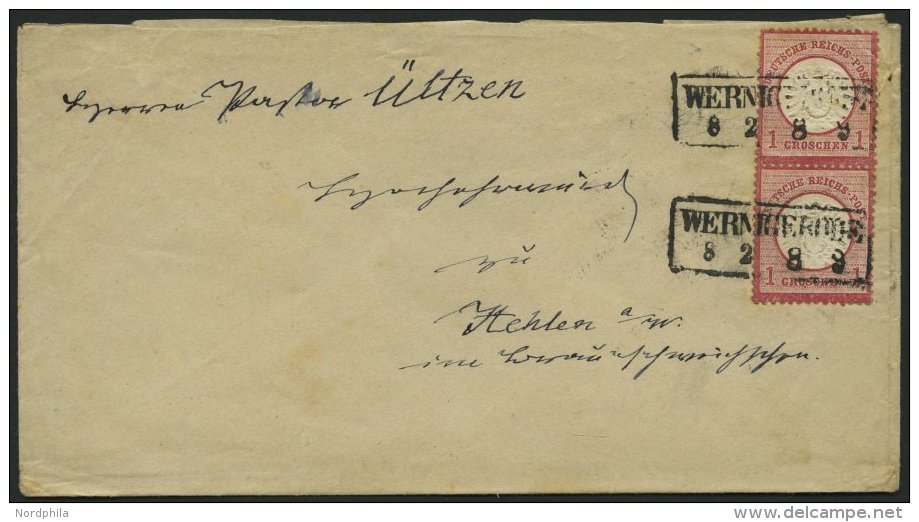 Herrn Pastor Ültzen
Hochehrwürd
zu
Hehlen a/W.
im Braunschweigschen.
DEUTSCHE REICHS-POST
1 GROSCHEN 1
WERNIGERODE
8 2 8 9
DEUTSCHE REICHS-POST
1 GROSCHEN 1
WERNIGERODE
8 2 8 9
Nordphila
www.delcampe.net